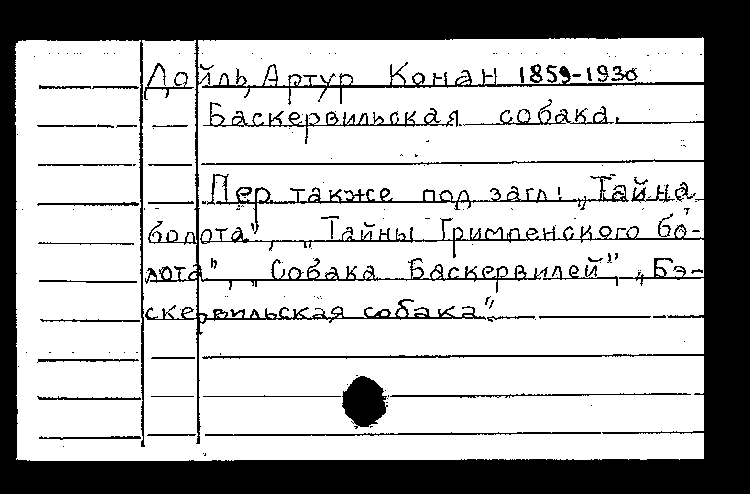 Дойль, Артур Конан 1859-1930
Баскервильская собака.
Пер также под загл: „Тайна
болота", „Тайны Гримпенского бо-
лота", „Собака Баскервилей", „Бэ-
скервильская собака"